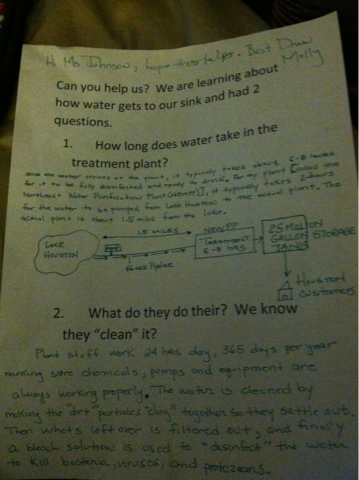 Hi Ms. Johnson, hope this helps. Best
Molly
Can you help us? We are learning about
how water gets to our sink and had 2
questions.
1. How long does water take in the
treatment plant?
once the water arrives at the plant, it typically takes about 6-8 hours
for it to be fully disinfected and ready to drink. For my plant (called the
Northeast Water Purification Plant (NEWPP)), it typically takes 2 hours
for the water to be pumped from Lake Houston to the actual plant. The
actual plant is about 1.5 miles from the lake.
LAKE
HOUSTON
1.5 MILES
Pipeline
NEWPP
TREATMENT
6-8 HRS
25 MILLION
GALLON STORAGE
TANK
Houston
Customers
2. What do they do their? We know
they "clean" it?
Plant staff work 24 hrs day, 365 days per year
making sure chemicals, pumps and equipment are
always working properly. The water is cleaned by
making the dirt particles "cling" together so they settle out.
Then what's left over is filtered out, and finally
a bleach solution is used to "disinfect" the water
to kill bacteria, viruses, and protozoans.